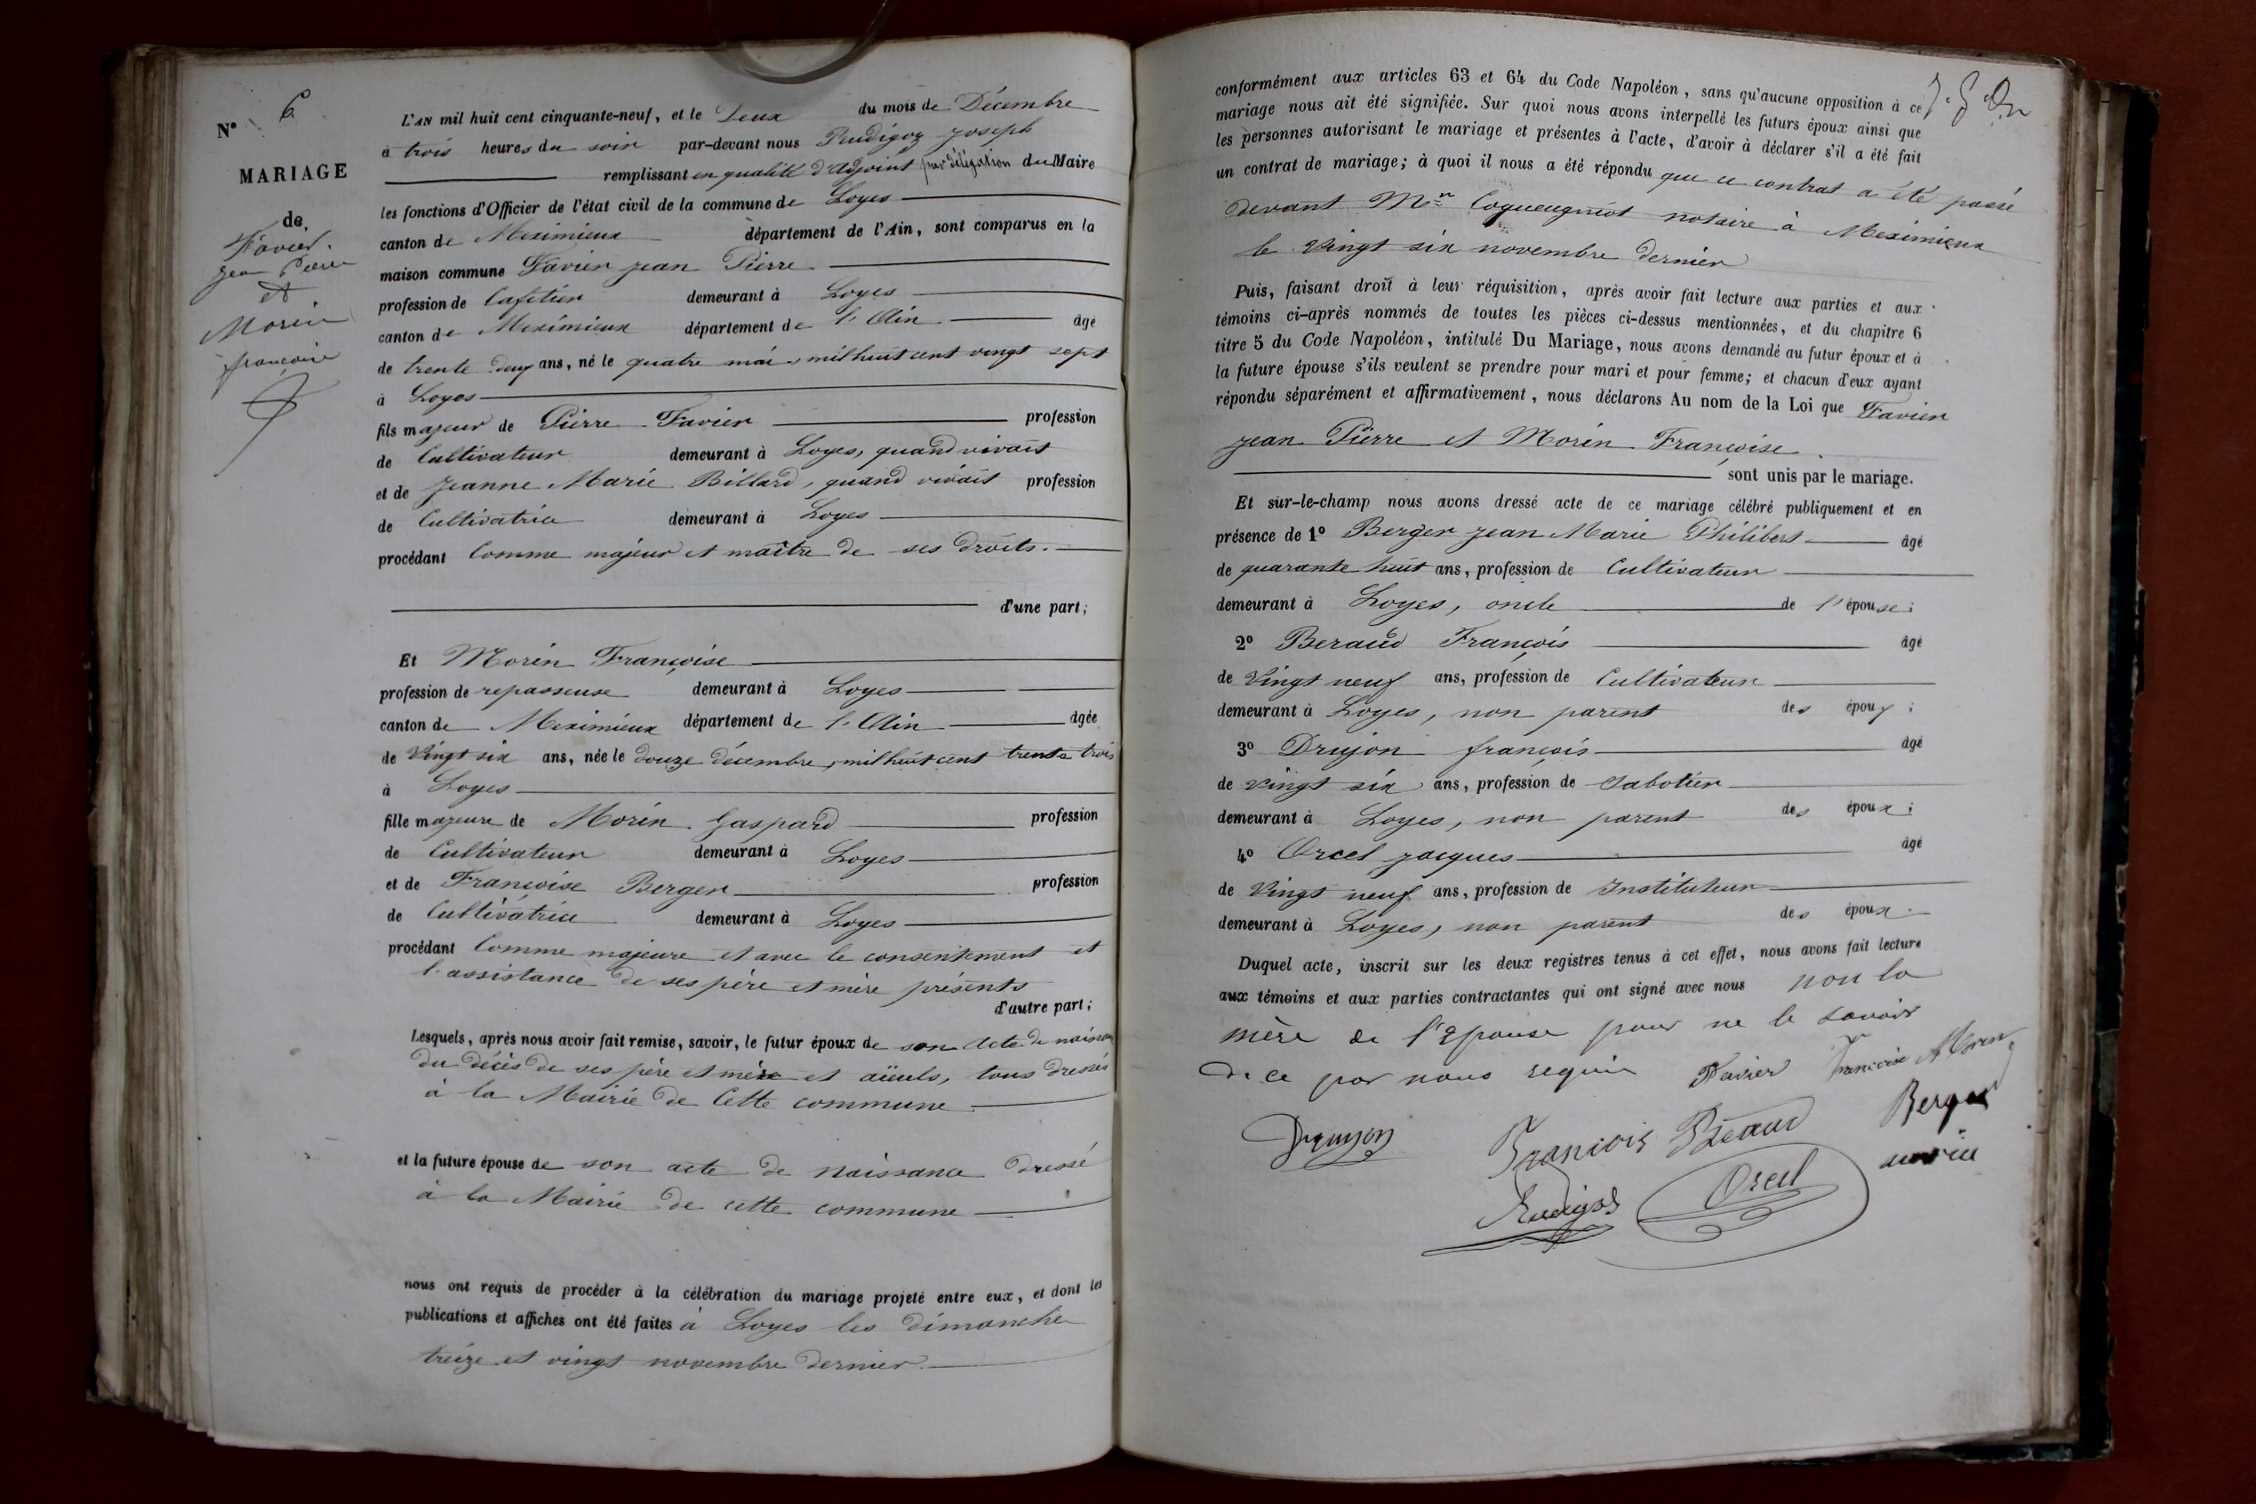 N° 6
MARIAGE
de
Favier
Jean Pierre
et
Morin
françoise
L'AN mil huit cent cinquante-neuf, et le Deux du mois de Décembre
à trois heures du soir par-devant nous Rudigoz Joseph
remplissant en qualité d'adjoint par délégation du Maire
les fonctions d'Officier de l'état civil de la commune de Loyes
canton de Meximieux département de l'Ain, sont comparus en la
maison commune Favier jean Pierre
profession de Cafetier demeurant à Loyes
canton de Meximieux département de l'Ain âgé
de trente deux ans, né le quatre mai, mil huit cent vingt sept
à Loyes
fils majeur de Pierre Favier profession
de Cultivateur demeurant à Loyes, quand vivait
et de Jeanne Marie Billard, quand vivait profession
de Cultivatrice demeurant à Loyes
procédant Comme majeur et maître de ses droits.
d'une part;
Et Morin Françoise
profession de repasseuse demeurant à Loyes
canton de Meximieux département de l'Ain âgée
de Vingt six ans, née le douze décembre, mil huit cent trente trois
à Loyes
fille majeure de Morin Gaspard profession
de Cultivateur demeurant à Loyes
et de Françoise Berger profession
de Cultivatrice demeurant à Loyes
procédant Comme majeure et avec le consentement et
l'assistance de ses père et mère présents
d'autre part;
Lesquels, après nous avoir fait remise, savoir, le futur époux de son acte de naissance
du décès de ses père et mère et aïeuls, tous dressés
à la Mairie de Cette commune
et la future épouse de son acte de naissance dressé
à la Mairie de cette commune
nous ont requis de procéder à la célébration du mariage projeté entre eux, et dont les
publications et affiches ont été faites à Loyes les dimanche
treize et vingt novembre dernier
conformément aux articles 63 et 64 du Code Napoléon, sans qu'aucune opposition à ce
mariage nous ait été signifiée. Sur quoi nous avons interpellé les futurs époux ainsi que
les personnes autorisant le mariage et présentes à l'acte, d'avoir à déclarer s'il a été fait
un contrat de mariage; à quoi il nous a été répondu que ce contrat a été passé
devant Mre Coqueugniot notaire à Meximieux
le vingt six novembre dernier
Puis, faisant droit à leur réquisition, après avoir fait lecture aux parties et aux
témoins ci-après nommés de toutes les pièces ci-dessus mentionnées, et du chapitre 6
titre 5 du Code Napoléon, intitulé Du Mariage, nous avons demandé au futur époux et à
la future épouse s'ils veulent se prendre pour mari et pour femme; et chacun d'eux ayant
répondu séparément et affirmativement, nous déclarons Au nom de la Loi que Favier
jean Pierre et Morin Françoise
sont unis par le mariage.
Et sur-le-champ nous avons dressé acte de ce mariage célébré publiquement et en
présence de 1° Berger jean Marie Philibert âgé
de quarante huit ans, profession de Cultivateur
demeurant à Loyes, oncle de l'épouse;
2° Beraud François âgé
de Vingt neuf ans, profession de Cultivateur
demeurant à Loyes, non parent des époux;
3° Drujon françois âgé
de vingt six ans, profession de Sabotier
demeurant à Loyes, non parent des époux;
4° Orcel jacques âgé
de Vingt neuf ans, profession de Instituteur
demeurant à Loyes, non parent des époux.
Duquel acte, inscrit sur les deux registres tenus à cet effet, nous avons fait lecture
aux témoins et aux parties contractantes qui ont signé avec nous non la
mère de l'Epouse pour ne le savoir
de ce par nous requis Favier Francoise Morin
Berger
Drujon François Béraud
morin
Rudigoz Orcel